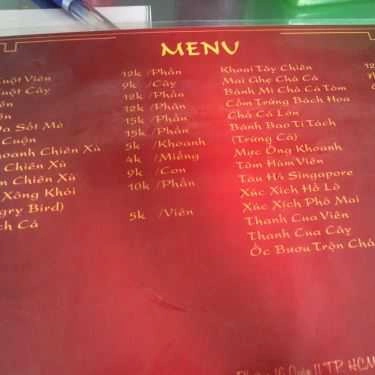 MENU
Viên 12k /Phần
Cây 9k /Cây
12k /Phần
12k /Phần
Sốt Mò 15k /Phần
Cuộn 15k /Phần
oanh Chiên Xù 5k /Khoanh
Chiên Xù 4k /Miếng
Chiên Xù 9k /Con
Xông Khói 10k /Phần
gry Bird)
ch Cá 5k /Viên
Khoai Tây Chiên 12
Mai Ghẹ Chả Cá
Bánh Mì Chả Cá Tôm
Cốm Trứng Bách Hoa
Chả Cá Lớn
Bánh Bao Ti Tách
(Trứng Cá)
Mực Ống Khoanh
Tôm Hùm Viên
Tàu Hủ Singapore
Xúc Xích Hồ Lô
Xúc Xích Phô Mai
Thanh Cua Viên
Thanh Cua Cây
Ốc Bươu Trộn Chả
11 TP. HCM